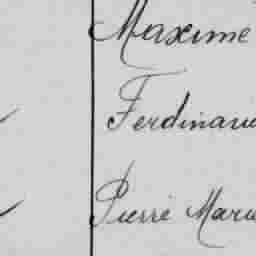 Maxime
Ferdinand
Pierre Marie